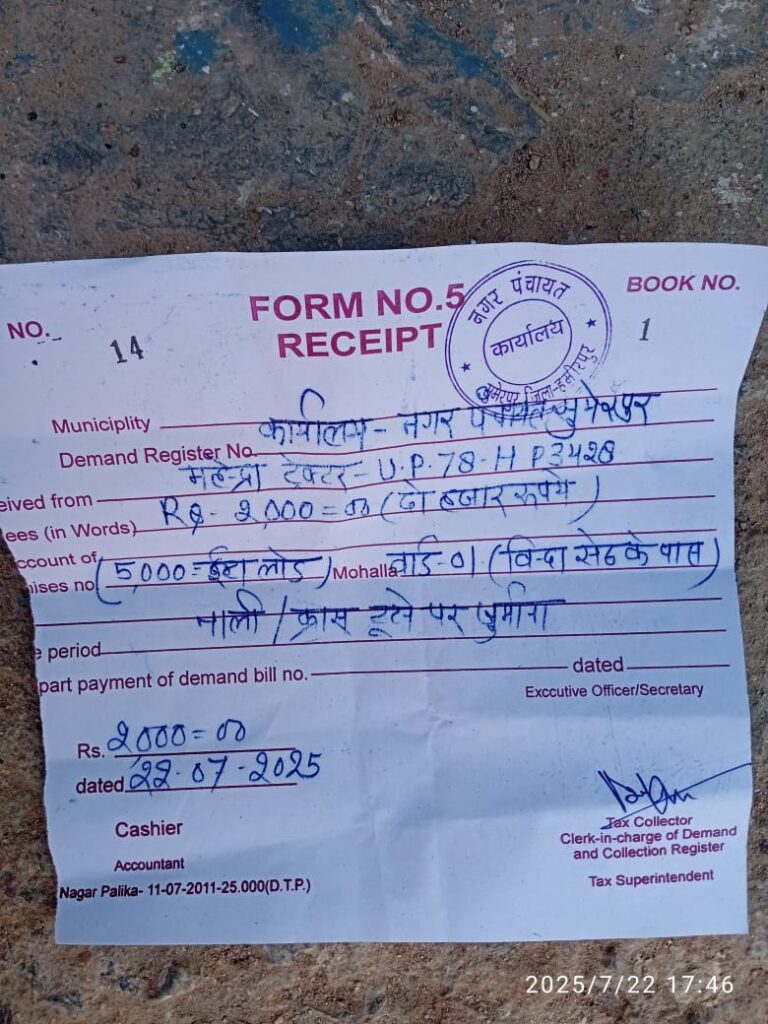 FORM NO.5
RECEIPT
NO. 14
BOOK NO.
1
नगर पंचायत
कार्यालय
सुमेरपुर जिला-हमीरपुर
Municiplity कार्यालय - नगर पंचायत सुमेरपुर
Demand Register No.
महेन्द्रा ट्रेक्टर - U.P.78-H P3428
eived from
ees (in Words) Rs - 2,000=00 (दो हजार रूपये)
ccount of
ises no (5,000=ईटा लोड) Mohalla वार्ड-01 (विन्दा सेठ के पास)
नाली / क्रास टूटने पर जुर्माना
e period
part payment of demand bill no. dated
Exccutive Officer/Secretary
Rs. 2000=00
dated 22.07-2025
Cashier
Tax Collector
Clerk-in-charge of Demand
and Collection Register
Accountant
Tax Superintendent
Nagar Palika- 11-07-2011-25.000(D.T.P.)
2025/7/22 17:46